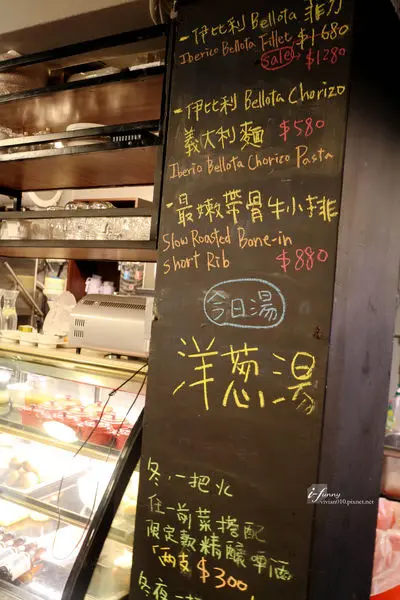 - 伊比利 Bellota 菲力
Iberico Bellota Fillet $1680
sale→ $1280
- 伊比利 Bellota Chorizo
義大利麵 $580
Iberio Bellota Chorico Pasta
- 最嫩帶骨牛小排
Slow Roasted Bone-in
short Rib $880
今日湯
洋蔥湯
冬，一把火
任一前菜搭配
限定款精釀啤酒
兩支 $300
冬夜一
i-funny
viviant110.pixnet.net